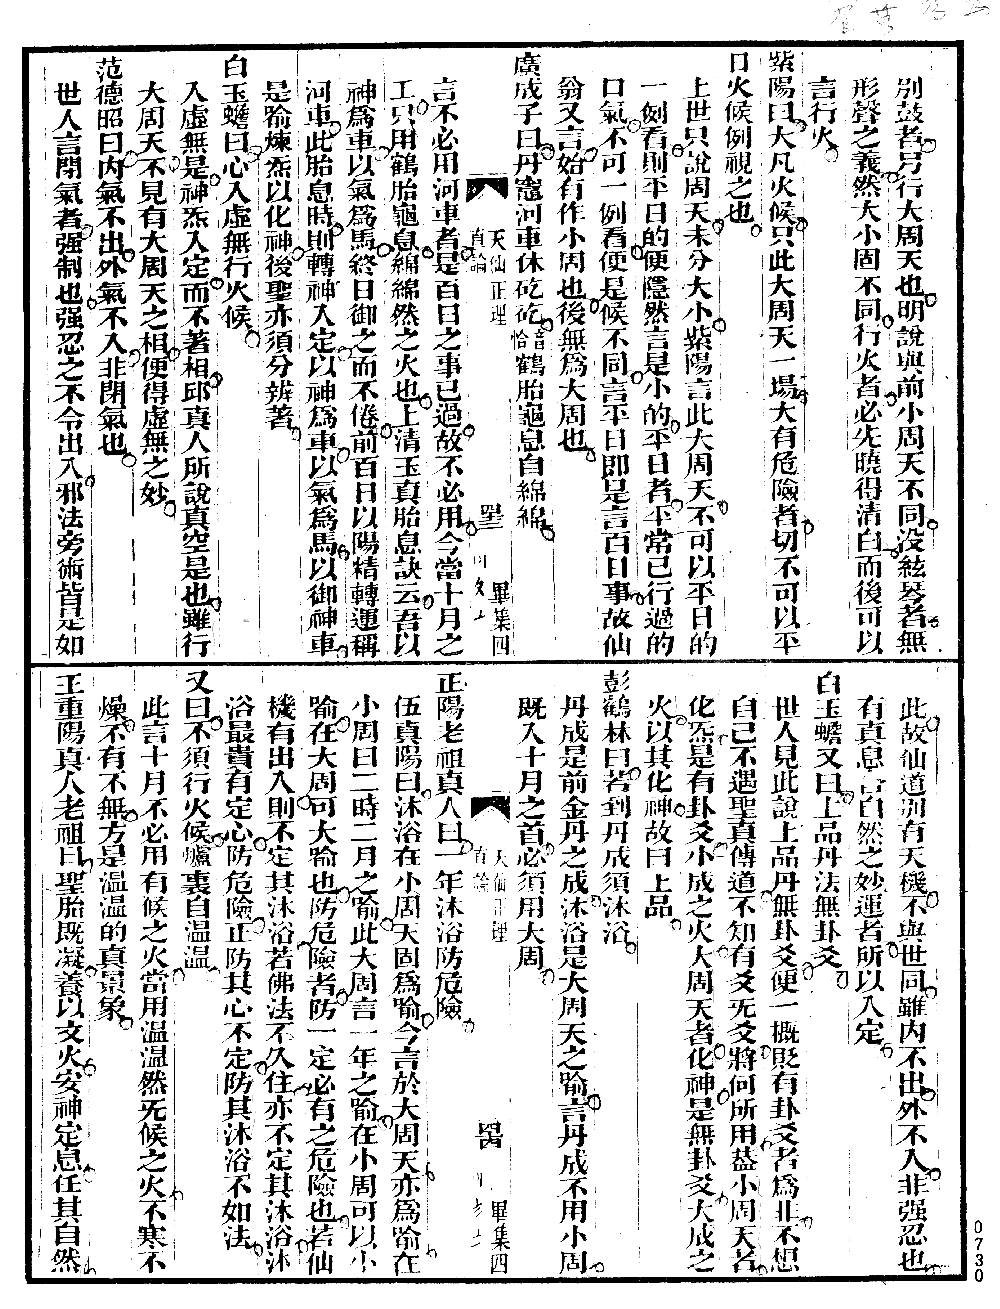 別鼓者另行大周天也明說與前小周天不同没絃琴者無
形聲之義然大小固不同行火者必先曉得清白而後可以
言行火
紫陽曰大凡火候只此大周天一場大有危險者切不可以平
日火候例視之也
上世只說周天未分大小紫陽言此大周天不可以平日的
一例看則平日的便隱然言是小的平日者平常已行過的
口氣不可一例看便是候不同言平日即是言百日事故仙
翁又言始有作小周也後無為大周也
廣成子曰丹竈河車休矻矻音恰鶴胎龜息自綿綿
天仙正理
直論
畢集四
言不必用河車者是百日之事已過故不必用今當十月之
工只用鶴胎龜息綿綿然之火也上清玉真胎息訣云吾以
神為車以氣為馬終日御之而不倦前百日以陽精轉運稱
河車此胎息時則轉神入定以神為車以氣為馬以御神車
是喻煉炁以化神後聖亦須分辨著
白玉蟾曰心入虛無行火候
入虛無是神炁入定而不著相邱真人所說真空是也雖行
大周天不見有大周天之相便得虛無之妙
范德昭曰內氣不出外氣不入非閉氣也
世人言閉氣者强制也强忍之不令出入邪法旁術皆是如
此故仙道別有天機不與世同雖內不出外不入非强忍也
有真息合自然之妙運者所以入定
白玉蟾又曰上品丹法無卦爻
世人見此說上品丹無卦爻便一概貶有卦爻者為非不想
自己不遇聖真傳道不知有爻无爻將何所用蓋小周天者
化炁是有卦爻小成之火大周天者化神是無卦爻大成之
火以其化神故曰上品
彭鶴林曰若到丹成須沐浴
丹成是前金丹之成沐浴是大周天之喻言丹成不用小周
既入十月之首必須用大周
天仙正理
直論
畢集四
正陽老祖真人曰一年沐浴防危險
伍真陽曰沐浴在小周天固為喻今言於大周天亦為喻在
小周曰二時二月之喻此大周言一年之喻在小周可以小
喻在大周可大喻也防危險者防一定必有之危險也若仙
機有出入則不定其沐浴若佛法不久住亦不定其沐浴沐
浴最貴有定心防危險正防其心不定防其沐浴不如法
又曰不須行火候爐裏自温温
此言十月不必用有候之火當用温温然无候之火不寒不
燥不有不無方是温温的真景象
王重陽真人老祖曰聖胎既凝養以文火安神定息任其自然
0730